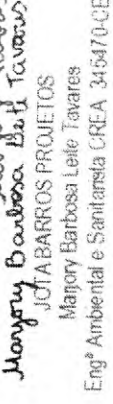 Marjory Barbosa Leite Tavares
JOTA BARROS PROJETOS
Marjory Barbosa Leite Tavares
Engª Ambiental e Sanitarista CREA 345470-CE